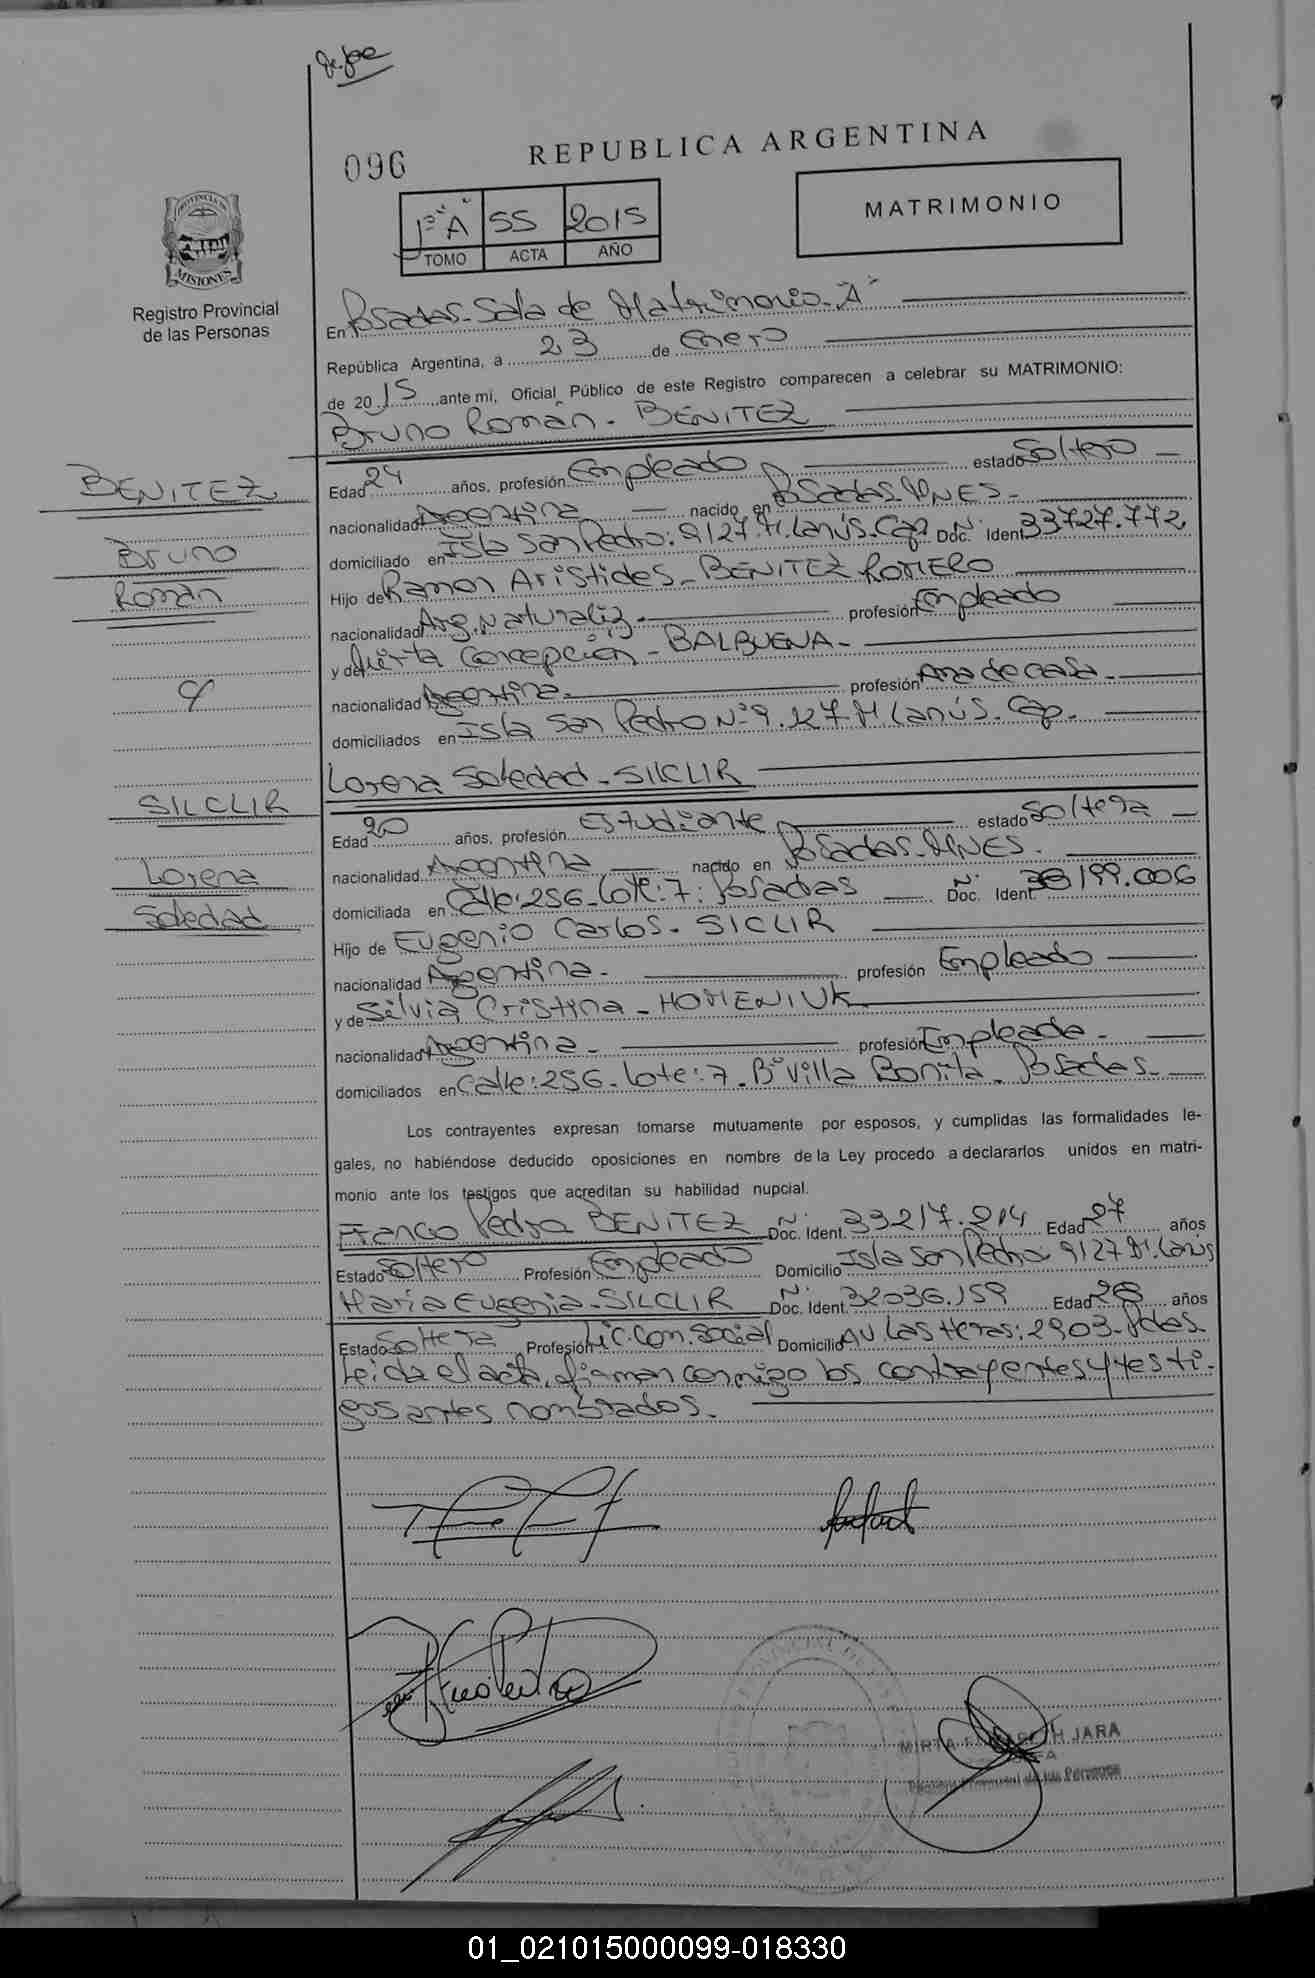 096
REPUBLICA ARGENTINA
1º "A" 55 2015
TOMO ACTA AÑO
MATRIMONIO
PROVINCIA DE MISIONES
Registro Provincial
de las Personas
En Posadas-Sala de Matrimonio-"A"
República Argentina, a 23 de Enero
de 2015 ante mí, Oficial Público de este Registro comparecen a celebrar su MATRIMONIO:
Bruno Román - BENITEZ
BENITEZ
Bruno
Román
y
SILCLIR
Lorena
Soledad
Edad 24 años, profesión Empleado estado Soltero
nacionalidad Argentina nacido en Posadas-MNES-
domiciliado en Isla San Pedro: 9127-M.Lanús-Cap. Doc. Ident. Nº 33727.772
Hijo de Ramon Aristides - BENITEZ ROMERO
nacionalidad Arg. Naturaliz. profesión Empleado
y de Mirta Concepción - BALBUENA -
nacionalidad Argentina profesión Ama de casa
domiciliados en Isla San Pedro Nº 9.127-M Lanús-Cap.
Lorena Soledad - SILCLIR
Edad 20 años, profesión Estudiante estado Soltera
nacionalidad Argentina nacido en Posadas-MNES.
domiciliada en Calle: 256-Lote: 7: Posadas Doc. Ident. Nº 38199.006
Hijo de Eugenio Carlos - SICLIR
nacionalidad Argentina profesión Empleado
y de Silvia Cristina - HOMENIUK
nacionalidad Argentina profesión Empleada -
domiciliados en Calle: 256-Lote: 7-Bº Villa Bonita - Posadas-
Los contrayentes expresan tomarse mutuamente por esposos, y cumplidas las formalidades le-
gales, no habiéndose deducido oposiciones en nombre de la Ley procedo a declararlos unidos en matri-
monio ante los testigos que acreditan su habilidad nupcial.
Franco Pedro BENITEZ Doc. Ident. Nº 33217.214 Edad 27 años
Estado Soltero Profesión Empleado Domicilio Isla San Pedro 9127 M.Lanús
María Eugenia - SILCLIR Doc. Ident. Nº 32036.159 Edad 28 años
Estado Soltera Profesión Lic. Com. Social Domicilio AV Las Heras: 2903-Pdas-
Leída el acta, firman conmigo los contrayentes y testi-
gos antes nombrados.
MIRTA JARA
Registro Provincial de las Personas
01_021015000099-018330